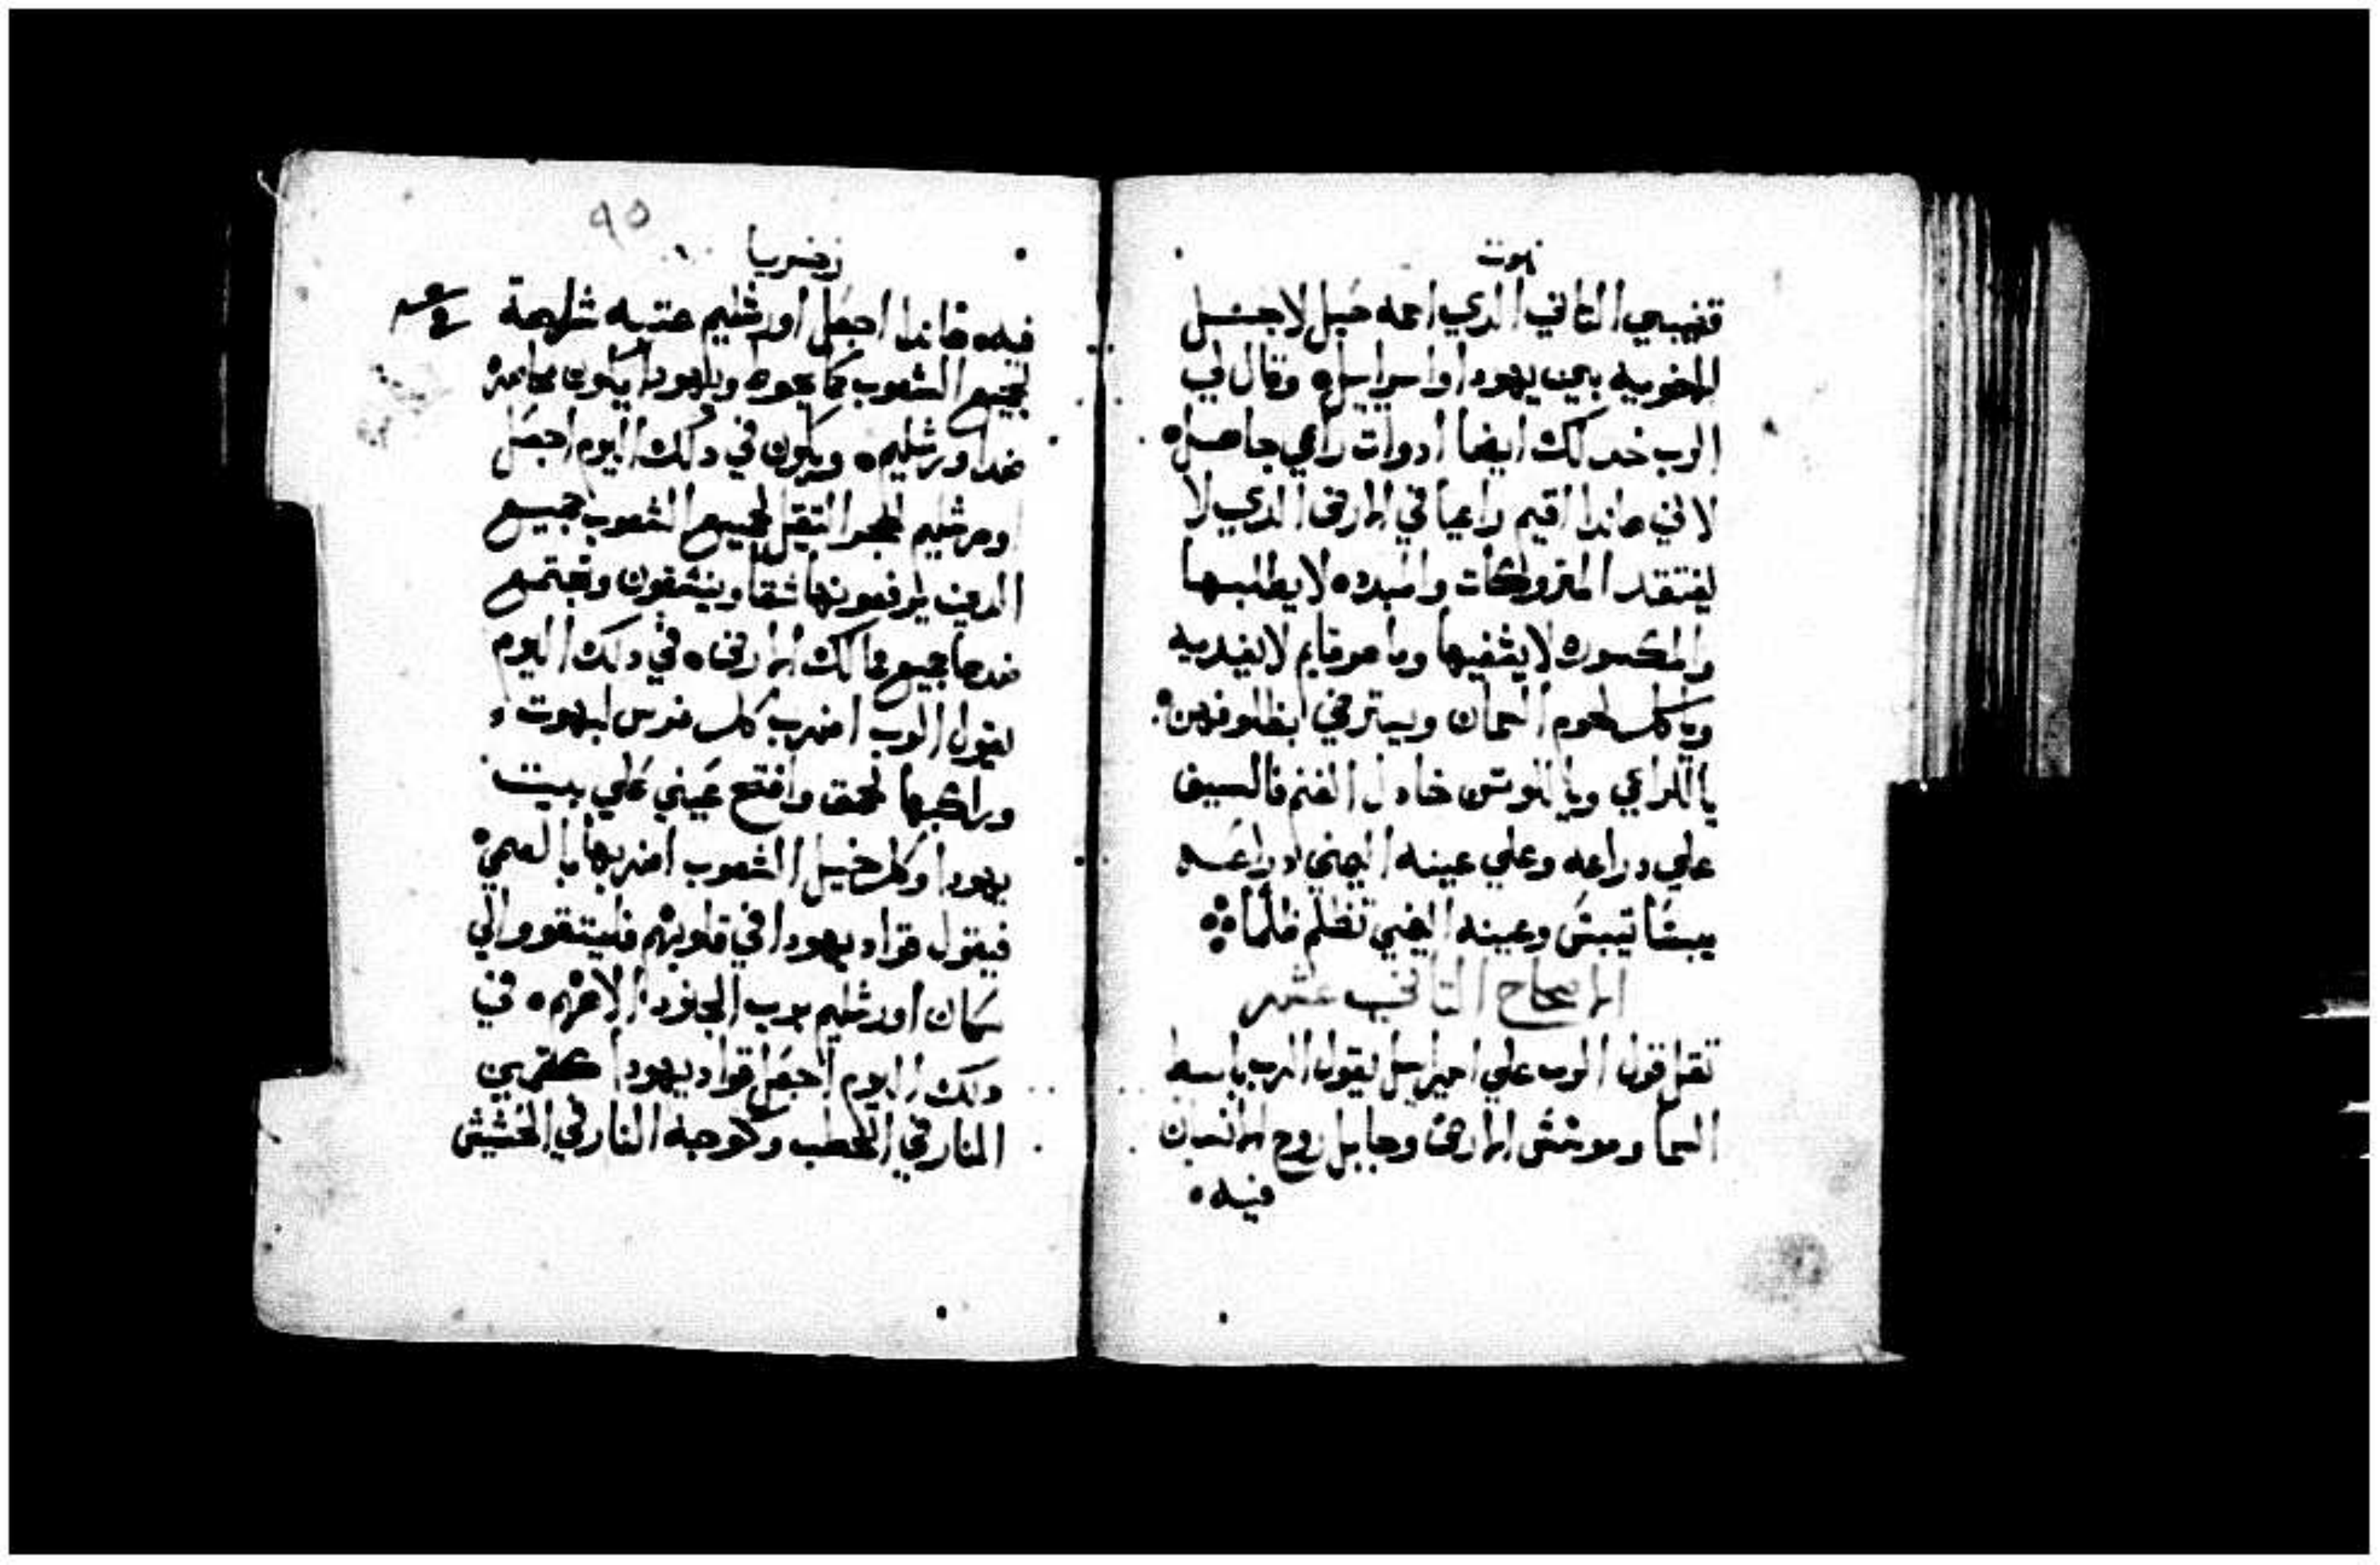 نبوت
قضيبي التاني الدي اسمه حَبل لاجنسل
المخوميه بين يهودا واسراييل۰ وقال لي
الرب خد لك ايضا ادوات راعي جاهل۰
لاني هاندا اقيم راعيا في الارض الدي لا
يفتقد المتروكات والمبدده لا يطلبها
والمكسوره لا يشفيها وما هو قايم لا يغديه
وياكل لحوم السمان ويسترخي اظلوفهن۰
يا للراعي ويا للوتن خادل الغنم فالسيف
علي دراعه وعلي عينه اليمني دراعَه
يبسًا تيبسَ وعينه اليمني تظلم ظلمًا
الاصحاح التاني عشر
تقل قول الرب علي اسراييل يقول الرب باسط
السما وموسس الارض وجابل روح الانسان
فيه۰
٩٥
زخريا
فيه۰ هاندا اجعَل اورشليم عتبه شاربة
لجميع الشعوب كما يحوط ويهودا يكون محاصرة
ضد اورشليم۰ ويكون في دلك اليوم اجعَل
اورشليم لحجر التقل لجميع الشعوب جميع
الدين يرفعونها شقا وينشقون وتجتمع
ضدها جميع ممالك الارض۰ في دلك اليوم
يقول الرب اضرب كل فرس لبهوت و
وراكبها لحمق وافتح عَيني عَلي بيت
يهودا وكل خيل الشعوب اضربها بالعمي۰
فيقول قواد يهودا في قلوبهم فليتقووا لي
سَكان اورشليم برب الجنود الاههم۰ في
دلك اليوم اجعَل قواد يهودا كتمرين
النار في الحطب وكوجه النار في الحشيش